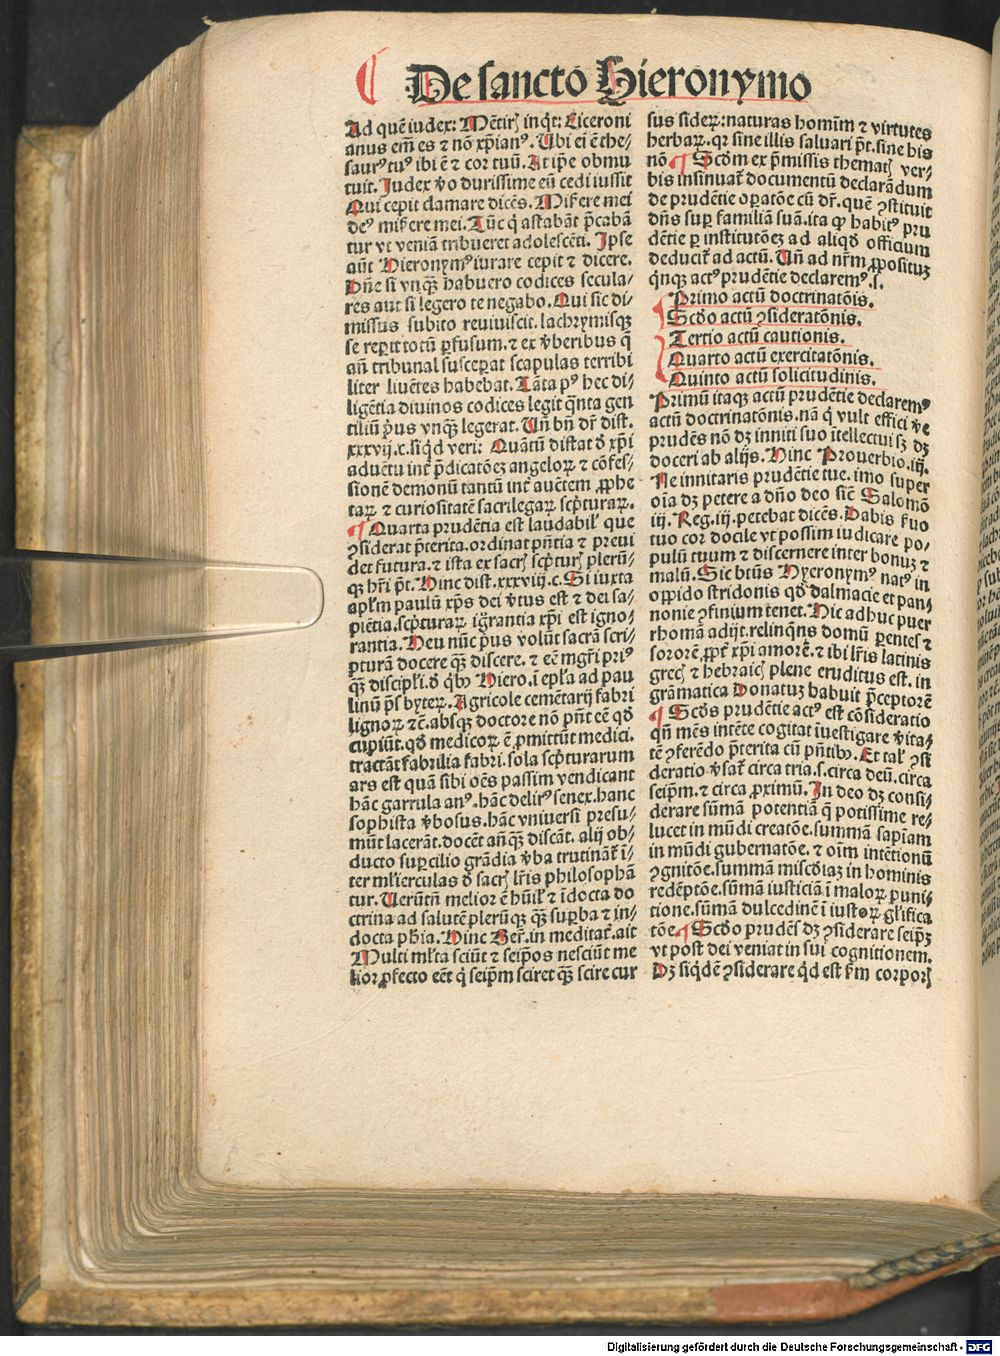 De sancto Hieronymo
Ad quē iudex: Mētiris inq̄t: Ciceroni
anus em̄ es ⁊ nō xp̄ianꝰ. Ubi ei ē the-
saurꝰ tuꝰ ibi ē ⁊ cor tuū. At ip̄e obmu
tuit. Iudex ꝟo durissime eū cedi iussit
Qui cepit clamare dicēs. Miserere mei
deꝰ miserere mei. Tūc q̇ astabāt p̄cabā
tur vt veniā tribueret adolescēti. Ipse
aūt Hieronymꝰ iurare cepit ⁊ dicere.
Dn̄e si vnqꝫ habuero codices secula-
res aut si legero te negabo. Qui sic di-
missus subito reuiuiscit. lachrymisqꝫ
se reperit totū ꝑfusum. ⁊ ex ꝟberibus q̄
an̄ tribunal susceꝑat scapulas terribi
liter liuētes habebat. Tāta pꝰ hec di-
ligētia diuinos codices legit q̄nta gen
tiliū prius vnqꝫ legerat. Un̄ bn̄ dr̄ dist.
xxxvij. c. siq̇d veri: Quātū distat ꝺ xp̄i
aduētu int̄ p̄dicatōeꝫ angeloꝝ ⁊ cōfes-
sionē demonū tantū int̄ auētem ꝓphe
taꝝ ⁊ curiositatē sacrilegaꝝ scp̄turaꝝ.
¶ Quarta prudētia est laudabilꝭ que
ꝯsiderat p̄terita. ordinat pn̄tia ⁊ preui
det futura. ⁊ ista ex sacrꝭ scp̄turꝭ plerū-
qꝫ hr̄i pt̄. Hinc dist. xxxviij. c. Si iuxta
apl̄m paulū xp̄s dei ꝟtus est ⁊ dei sa-
piētia. scp̄turaꝝ igrantia xp̄i est igno-
rantia. Heu nūc prius volūt sacrā scri-
pturā docere qꝫ̄ discere. ⁊ eē mgr̄i priꝰ
qꝫ̄ discipl̄i. ꝺ qͥbꝫ Hiero. i epl̄a ad pau
linū p̄sbyteꝝ. Agricole cemētarij fabri
lignoꝝ ⁊c̄. absqꝫ doctore nō pn̄t eē qꝺ
cupiūt. qꝺ medicoꝝ ē ꝓmittūt medici.
tractāt fabrilia fabri. sola scp̄turarum
ars est quā sibi oēs passim vendicant
hāc garrula anꝰ. hāc delirꝰ senex. hanc
sophista ꝟbosus. hāc vniuersi presu-
mūt lacerāt. docēt an̄qꝫ discāt. alij ob-
ducto suꝑcilio grādia ꝟba trutināt̄ ī-
ter ml̄ierculas ꝺ sacrꝭ lr̄is philosophā
tur. Uerūtn̄ melior ē hūil̄ ⁊ īdocta do
ctrina ad salutē plerūqꝫ qꝫ̄ suꝑba ⁊ in-
docta ph̄ia. Hinc Ber. in meditat̄. ait
Multi ml̄ta sciūt ⁊ seip̄os nesciūt me
lior ꝓfecto eēt q̇ seip̄m sciret qꝫ̄ scire cur
sus sideꝝ: naturas homīm ⁊ virtutes
herbaꝝ. qꝛ sine illis saluari pt̄. sine his
nō ¶ Scd̄m ex p̄missis thematꝭ ver-
bis insinuat̄ documentū declarādum
de prudētie oꝑatōe cū dr̄. quē ꝯstituit
dn̄s suꝑ familiā suā. ita ꝙ habitꝰ pru
dētie ꝑ institutōeꝫ ad aliqꝺ officium
deducit̄ ad actū. Un̄ ad nr̄m ꝓposituꝫ
q̇nqꝫ actꝰ prudētie declaremꝰ. s.
Primo actū doctrinatōis.
Scd̄o actū ꝯsideratōnis.
Tertio actū cautionis.
Quarto actū exercitatōnis.
Quinto actū solicitudinis.
Primū itaqꝫ actū prudētie declaremꝰ
actū doctrinatōnis. nā q̇ vult effici ꝟe
prudēs nō dꝫ inniti suo ītellectui sꝫ dꝫ
doceri ab alijs. Hinc Prouerbio. iij.
Ne innitaris prudētie tue. imo super
oīa dꝫ petere a dn̄o deo sicē Salomō
iij. Reg. iij. petebat dicēs. Dabis ẜuo
tuo cor docile vt possim iudicare po-
pulū tuum ⁊ discernere inter bonuꝫ ⁊
malū. Sic btūs Hyeronymꝰ natꝰ in
oppido stridonis qꝺ dalmacie et pan-
nonie ꝯfinium tenet. Hic adhuc puer
rhomā adijt. relinqͥns domū ꝑentes ⁊
sororē. ꝓpt̄ xp̄i amorē. ⁊ ibi lr̄is latinis
grecꝭ ⁊ hebraicꝭ plene eruditus est. in
grāmatica Donatuꝫ habuit p̄ceptorē
¶ Scd̄s prudētie actꝰ est cōsideratio
qn̄ mēs intēte cogitat īuestigare ꝟita-
tē ꝯferēdo p̄terita cū pn̄tibꝫ. Et talꝭ ꝯsi
deratio ꝟsat̄ circa tria. s. circa deū. circa
seip̄m. ⁊ circa ꝓximū. In deo dꝫ consi-
derare sūmā potentiā q̄ potissime re-
lucet in mūdi creatōe. summā sapīam
in mūdi gubernatōe. ⁊ oīm intētionū
ꝯgnitōe. summā miscd̄iaꝫ in hominis
redēptōe. sūmā iusticiā ī maloꝝ puni-
tione. sūmā dulcedinē ī iustoꝝ gl̄ifica
tōe. ¶ Scd̄o prudēs dꝫ ꝯsiderare seip̄ꝫ
vt post dei veniat in sui cognitionem.
Dꝫ siq̇dē ꝯsiderare q̇d est ẜm corporꝭ
Digitalisierung gefördert durch die Deutsche Forschungsgemeinschaft - DFG